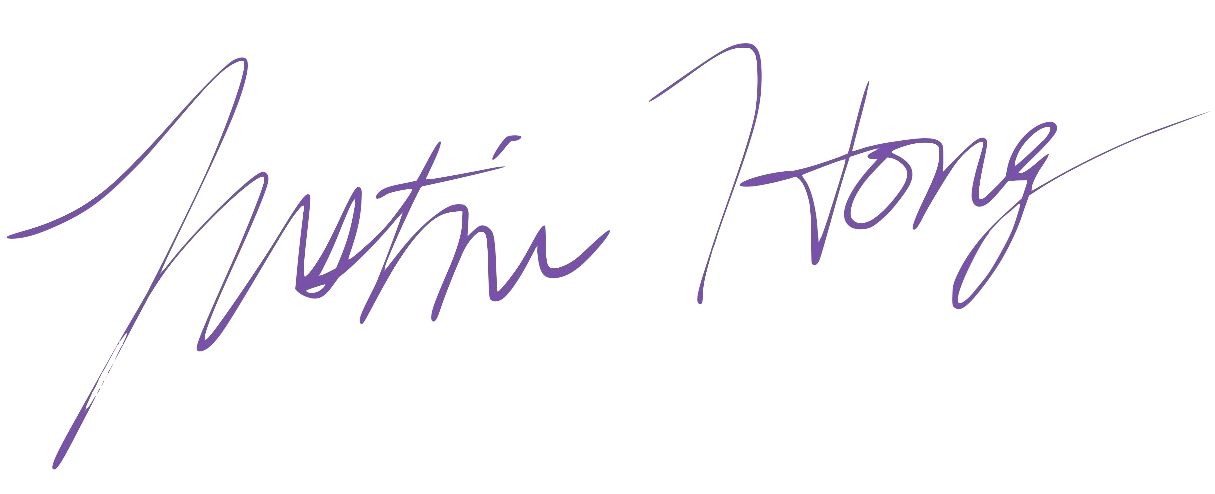 Justin Hong